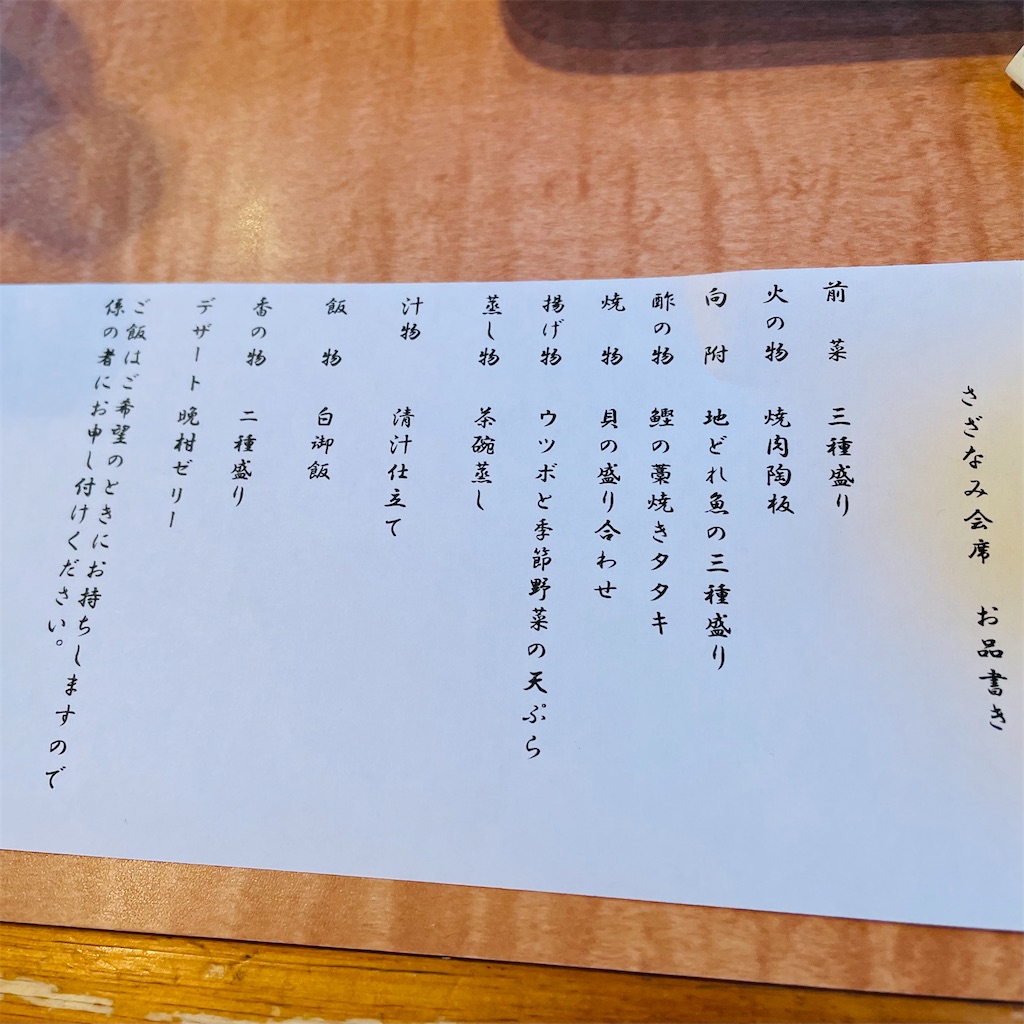 さざなみ会席 お品書き
前菜 三種盛り
火の物 焼肉陶板
向附 地どれ魚の三種盛り
酢の物 鰹の藁焼きタタキ
焼物 貝の盛り合わせ
揚げ物 ウツボと季節野菜の天ぷら
蒸し物 茶碗蒸し
汁物 清汁仕立て
飯物 白御飯
香の物 二種盛り
デザート 晩柑ゼリー
ご飯はご希望のときにお持ちしますので
係の者にお申し付けください。